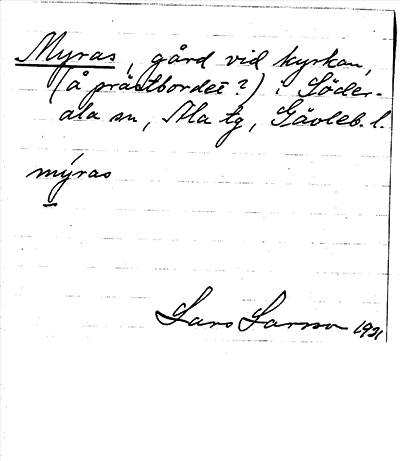 Myras, gård vid kyrkan,
(å prästbordet?) i Söder-
ala sn, Ala tg, Gävleb. l.
mýras
Lars Larsson 1921